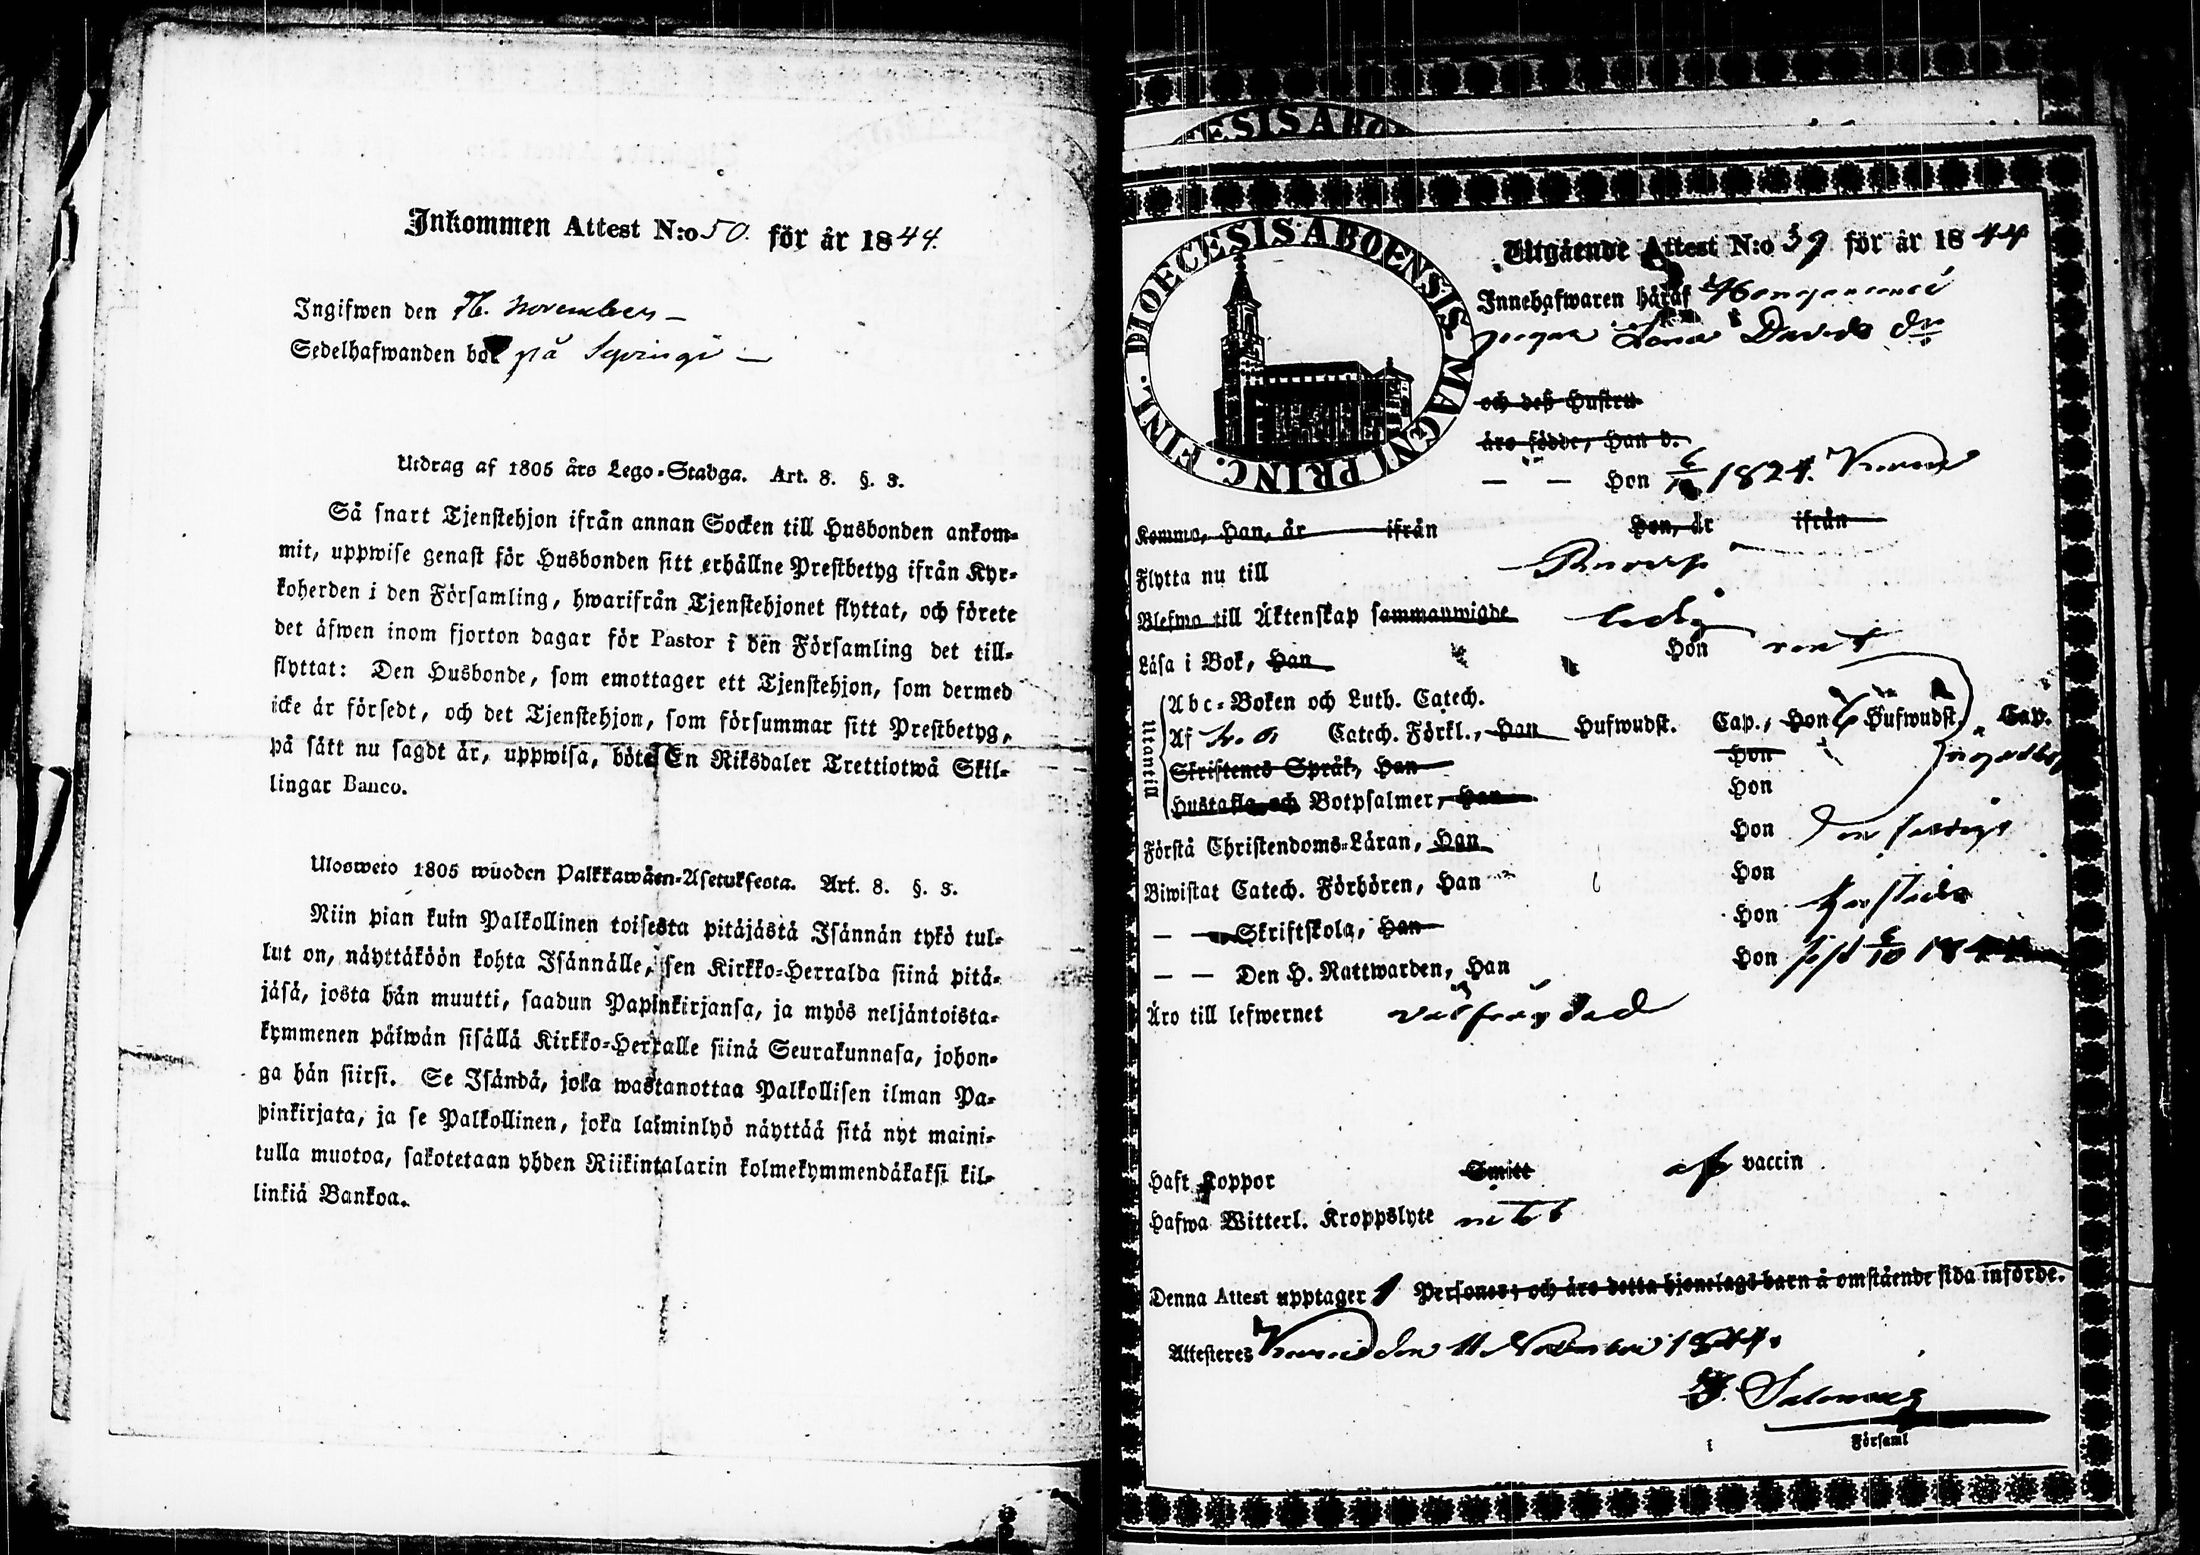 Inkommen Attest N:o 50. för år 1844.
Ingifwen den 16. november
Sedelhafwanden bor på
Utdrag af 1805 års Lego-Stadga. Art. 8. §. 3.
Så snart Tjenstehjon ifrån annan Socken till Husbonden ankom-
mit, uppwise genast för Husbonden sitt erhållne Prestbetyg ifrån Kyr-
koherden i den Församling, hwarifrån Tjenstehjonet flyttat, och förete
det äfwen inom fjorton dagar för Pastor i den Församling det till-
flyttat: Den Husbonde, som emottager ett Tjenstehjon, som dermed
icke är försedt, och det Tjenstehjon, som försummar sitt Prestbetyg,
på sätt nu sagdt är, uppwisa, böte En Riksdaler Trettiotwå Skil-
lingar Banco.
Ulosweto 1805 wuoden Palkkawäen-Asetuksesta. Art. 8. §. 3.
Niin pian kuin Palkollinen toisesta pitäjästä Isännän tykö tul-
lut on, näyttäköön kohta Isännälle, sen Kirkko-Herralda siinä pitä-
jäsä, josta hän muutti, saadun Papinkirjansa, ja myös neljäntoista-
kymmenen päiwän sisällä Kirkko-Herralle siinä Seurakunnasa, johon-
ga hän siirsi. Se Isändä, joka wastanottaa Palkollisen ilman Pa-
pinkirjata, ja se Palkollinen, joka laiminlyö näyttää sitä nyt maini-
tulla muotoa, sakotetaan yhden Riikintalarin kolmekymmendäkaksi kil-
linkiä Bankoa.
DIOECESIS ABO
DIOECESIS ABOENSIS MAGNI PRINC. FINL.
Utgående Attest N:o 39 för år 1844
Innehafwaren häraf
pigan Lena Davids dr
och deß Hustru
äro födde, Han d.
— — Hon 1824.
Komma, Han, år ifrån Hon, år ifrån
Flytta nu till
Blefwo till Äktenskap sammanwigde ledig
Läsa i Bok, Han Hon rent
Utantill
Abc-Boken och Luth. Catech.
Af Catech. Förkl., Han Hufwudst. Cap., Hon Hufwudst. Cap.
Skriftenes Språk, Han Hon
Hustafla och Botpsalmer, Han Hon
Förstå Christendoms-Läran, Han Hon
Biwistat Catech. Förhören, Han Hon
— Skriftskola, Han Hon
— — Den H. Nattwarden, Han Hon
Äro till lefwernet välfrägdad
Haft Koppor Smitt af vaccin
Hafwa Witterl. Kroppslyte
Denna Attest upptager 1 Personer; och äro detta hjonelags barn å omstående sida införde.
Attesteres den 11 November 1844.
Församl